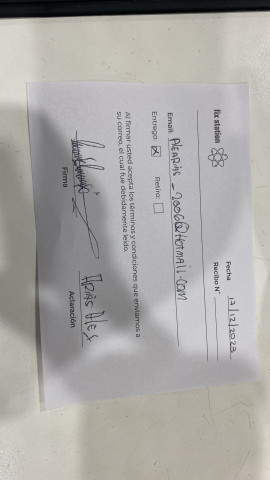 fix station
Fecha 13/12/2023
Recibo N°
Email: PIEARIAS_2006@HOTMAIL.COM
Entrego: ☒ Retiro: ☐
Al firmar usted acepta los términos y condiciones que enviamos a
su correo, el cual fue debidamente leído.
ARIAS ALES
Firma Aclaración